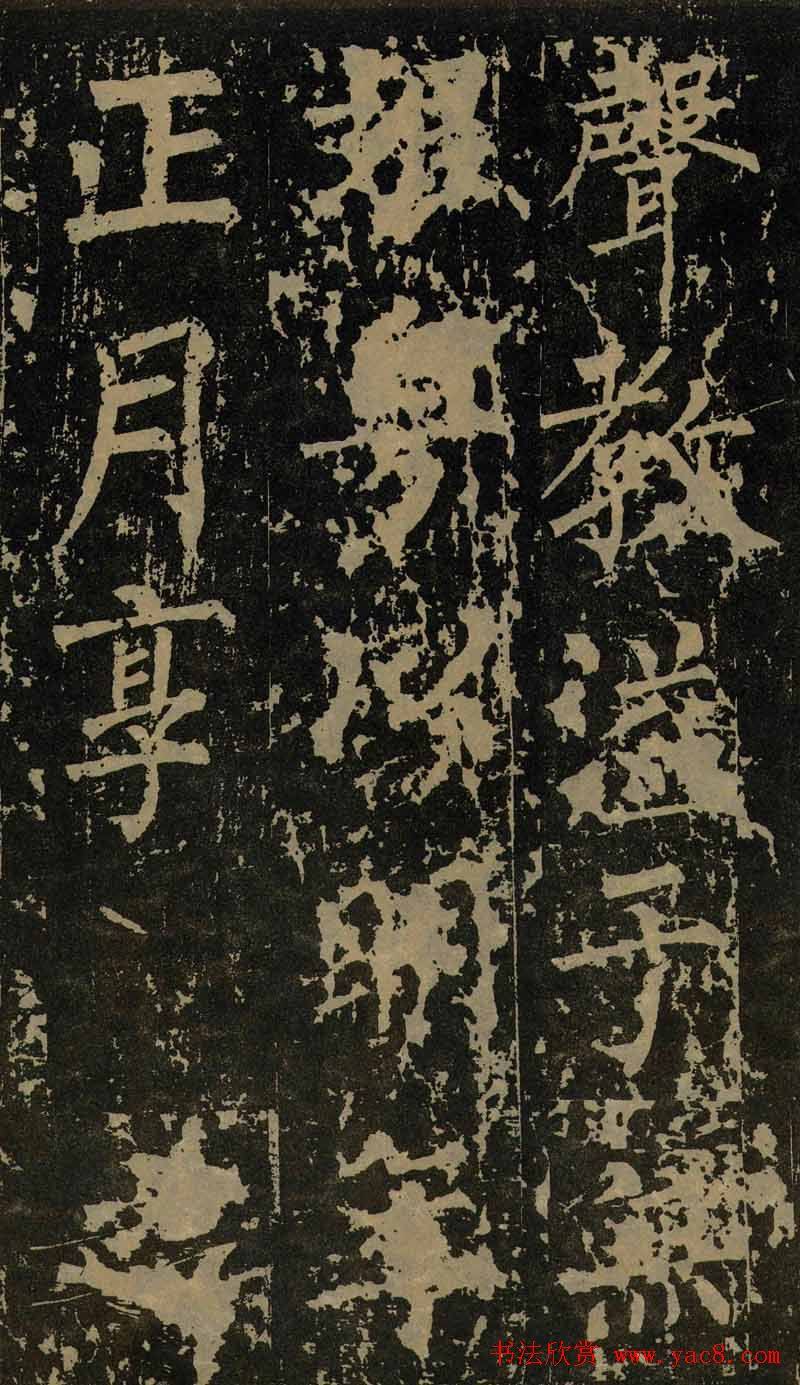 聲教溢于無
疆粤以明年
正月享
书法欣赏 www.yac8.com